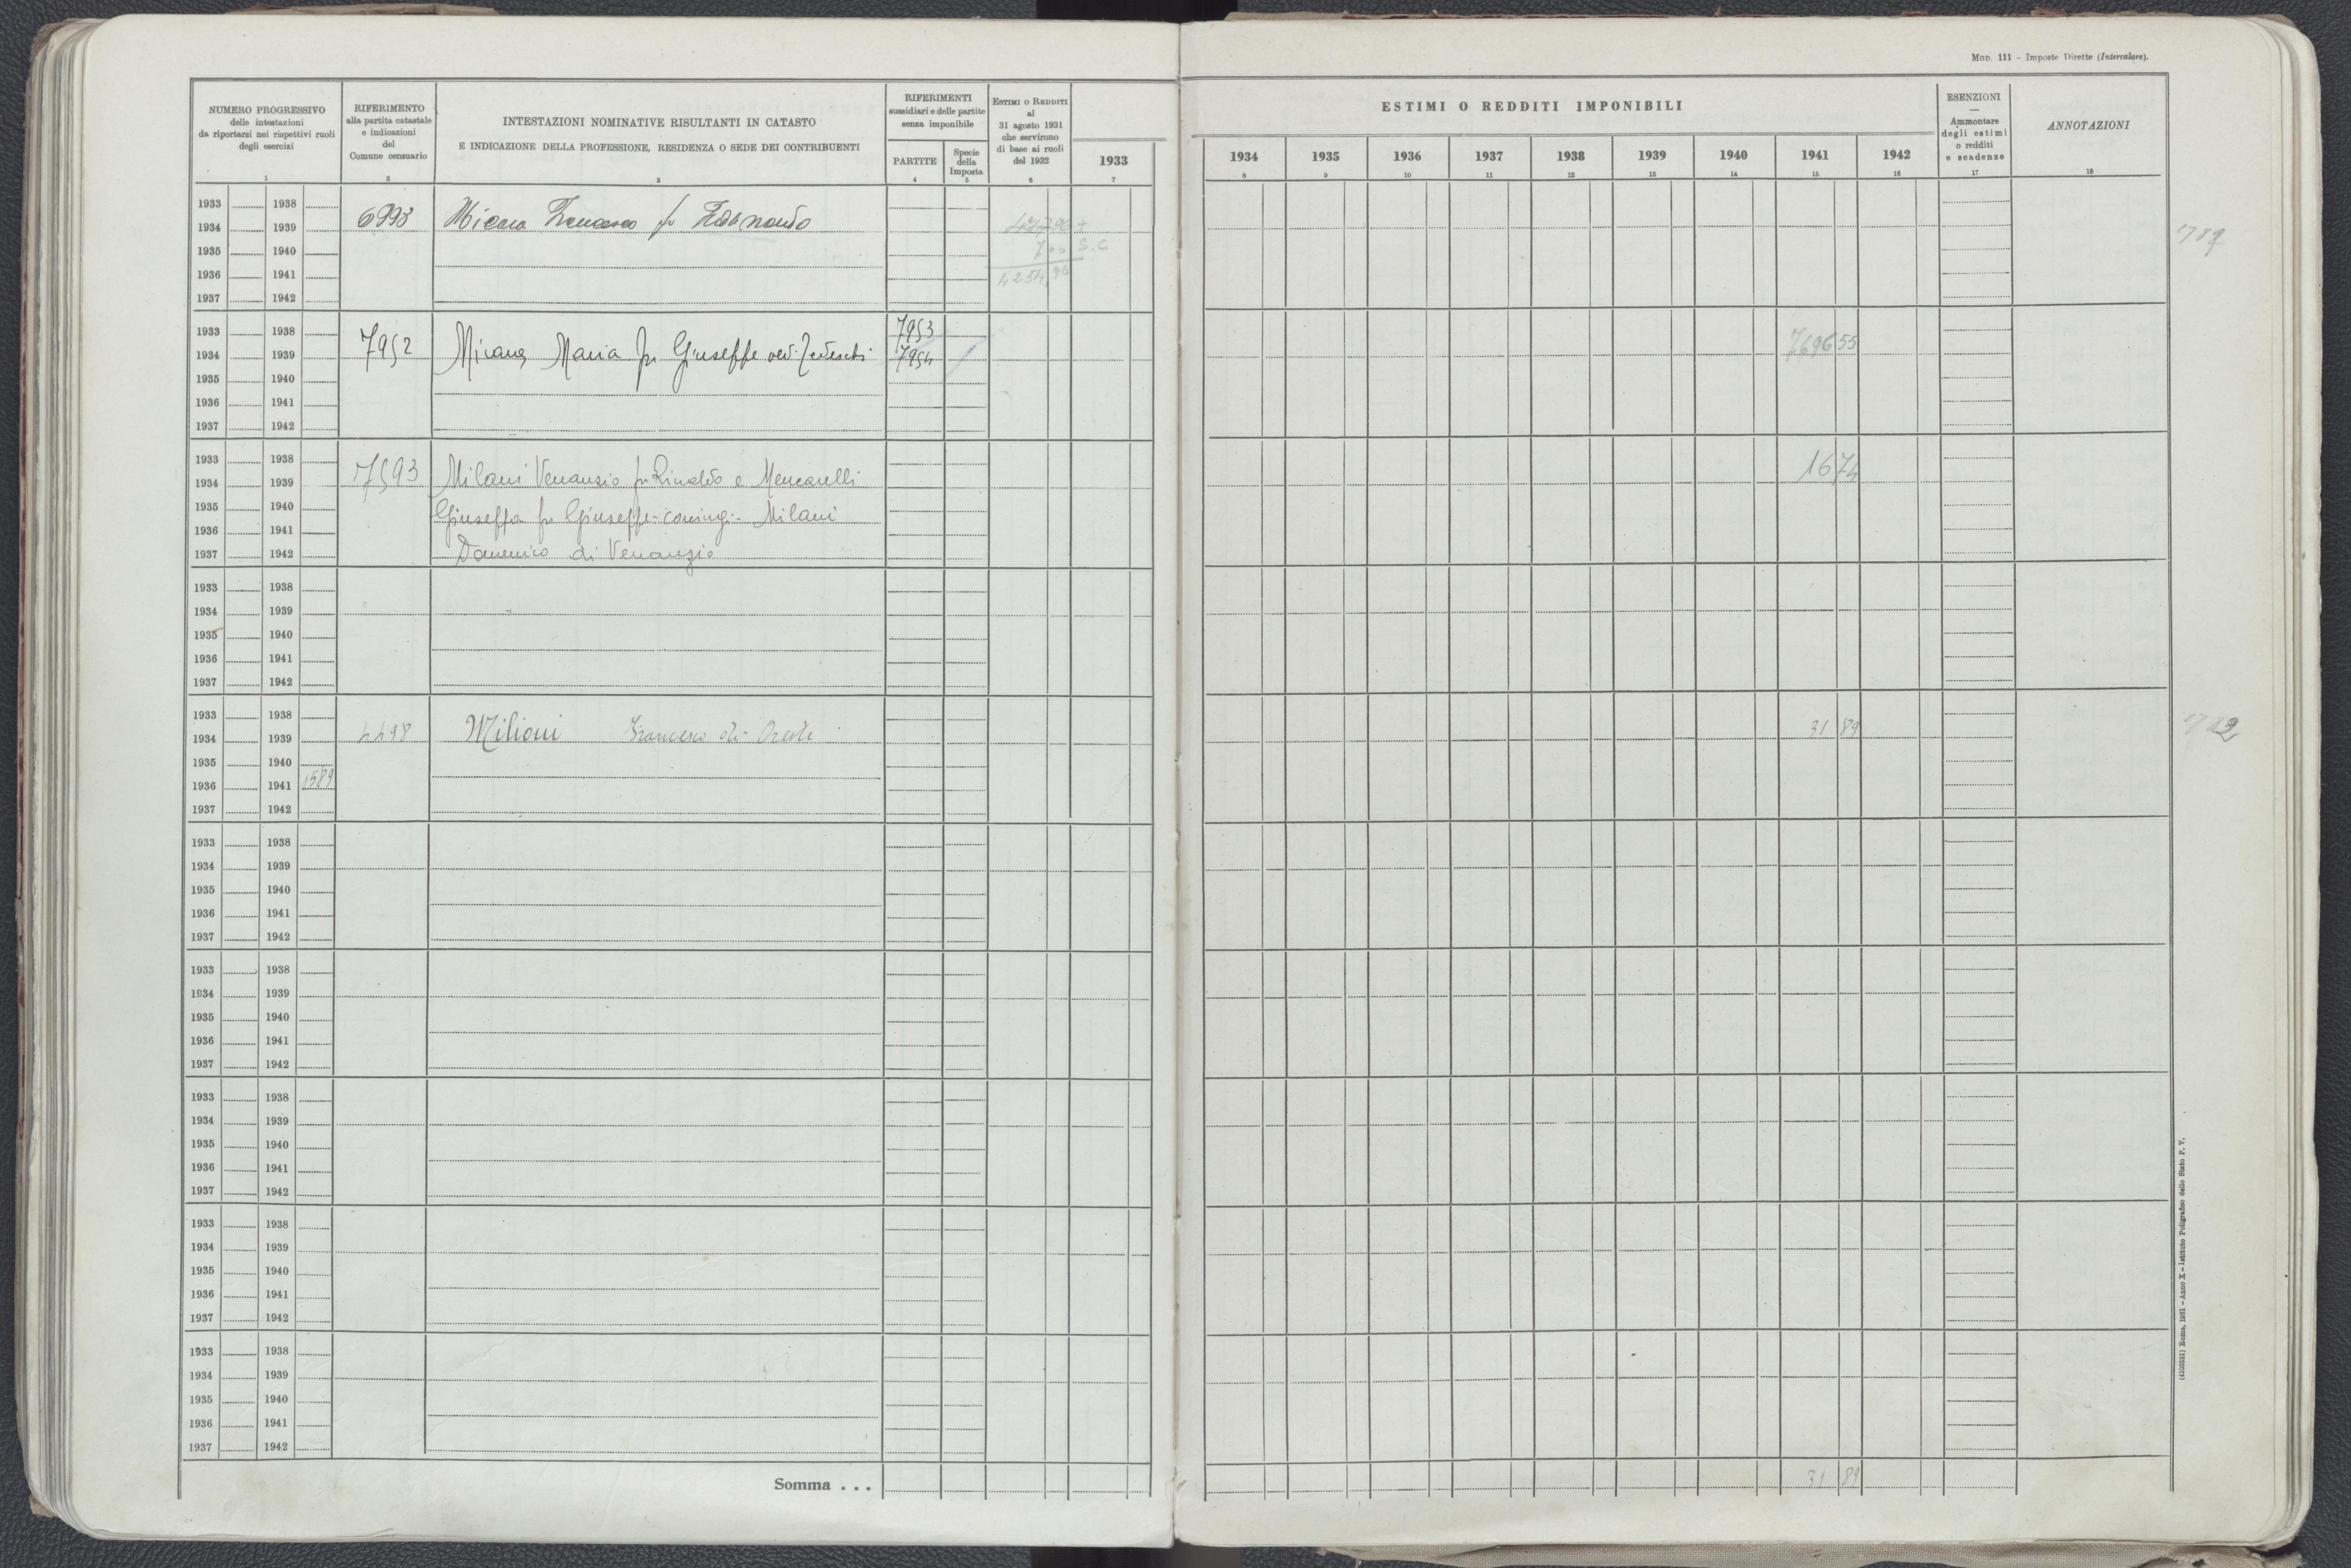 Mod. 111 – Imposte Dirette (Intercalare).
NUMERO PROGRESSIVO
delle intestazioni
da riportarsi nei rispettivi ruoli
degli esercizi
1
RIFERIMENTO
alla partita catastale
e indicazioni
del
Comune censuario
2
INTESTAZIONI NOMINATIVE RISULTANTI IN CATASTO
E INDICAZIONE DELLA PROFESSIONE, RESIDENZA O SEDE DEI CONTRIBUENTI
3
RIFERIMENTI
sussidiari e delle partite
senza imponibile
PARTITE
4
Specie
della
Imposta
5
Estimi o Redditi
al
31 agosto 1931
che servirono
di base ai ruoli
del 1932
6
1933
7
ESTIMI O REDDITI IMPONIBILI
1934 1935 1936 1937 1938 1939 1940 1941 1942
8 9 10 11 12 13 14 15 16
ESENZIONI
—
Ammontare
degli estimi
o redditi
e scadenze
17
ANNOTAZIONI
18
1933 1938
1934 1939 6993 Micara Francesco fu Ferdinando
1935 1940 700 S.C
1936 1941 4254,96
1937 1942
1933 1938 7953
1934 1939 7952 Micara Maria fu Giuseppe ved. Tedeschi 7954 7696 55
1935 1940
1936 1941
1937 1942
1933 1938
1934 1939 7593 Milani Venanzio fu Rinaldo e Mencarelli 1674
1935 1940 Giuseppa fu Giuseppe coniugi - Milani
1936 1941
1937 1942 Domenico di Venanzio
1933 1938
1934 1939
1935 1940
1936 1941
1937 1942
1933 1938
1934 1939 4498 Milioni Francesco di Oreste 31 89
1935 1940
1936 1941 1589
1937 1942
1933 1938
1934 1939
1935 1940
1936 1941
1937 1942
1933 1938
1934 1939
1935 1940
1936 1941
1937 1942
1933 1938
1934 1939
1935 1940
1936 1941
1937 1942
1933 1938
1934 1939
1935 1940
1936 1941
1937 1942
1933 1938
1934 1939
1935 1940
1936 1941
1937 1942
Somma . . . 31 89